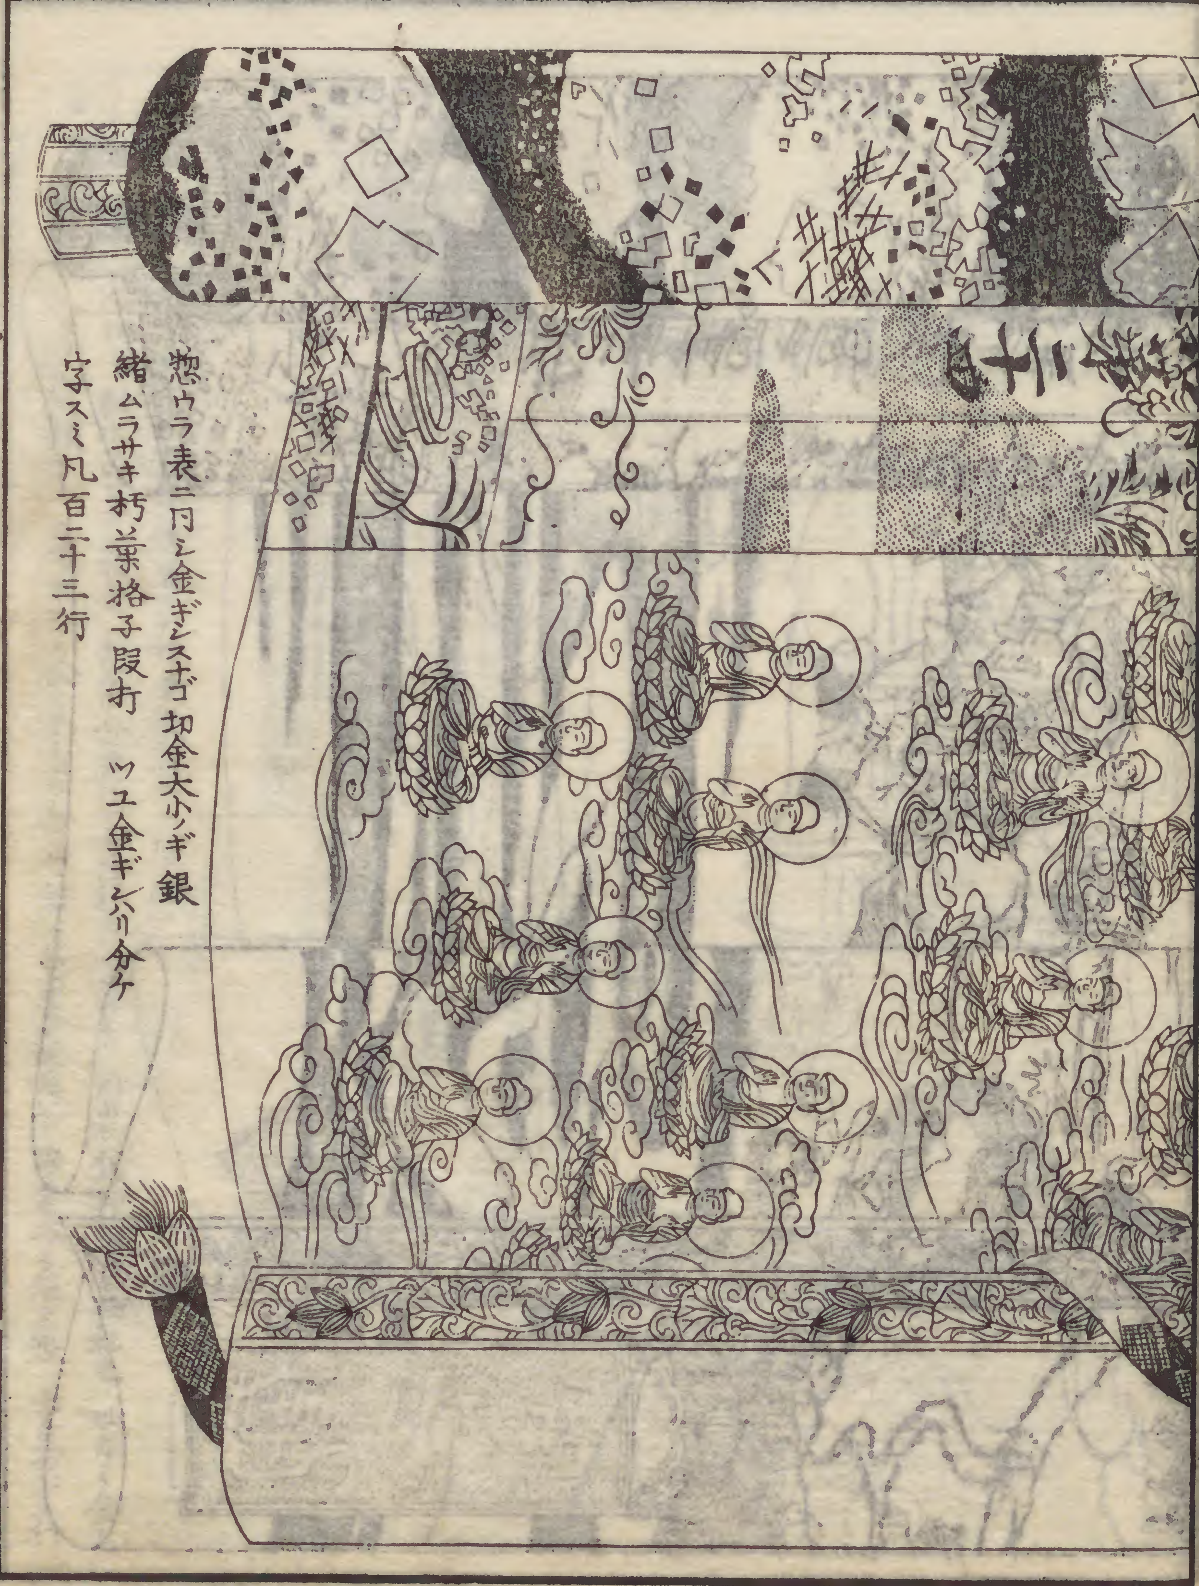 惣ウラ表ニ同シ金ギンスナゴ切金大小ノギ銀
緒ムラサキ朽葉格子段打　ツユ金ギンハリ分ケ
字スミ凡百二十三行
二十四